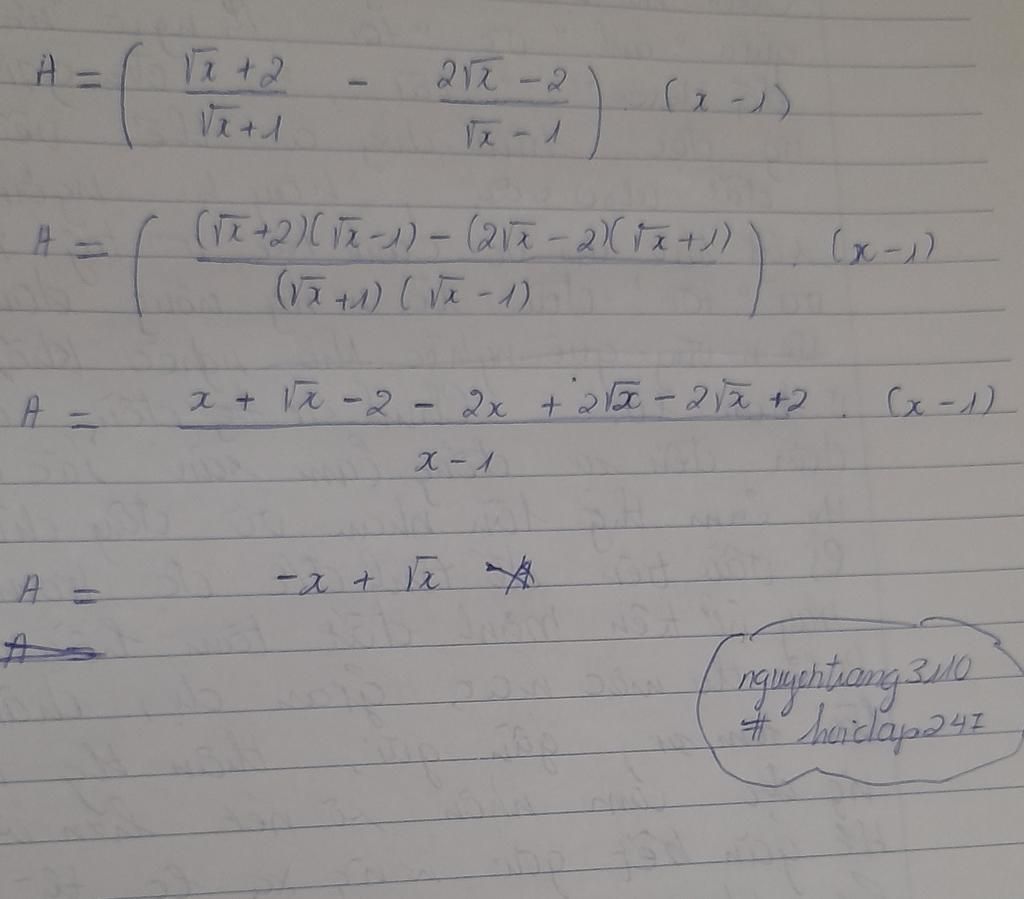 A = ( (√x + 2)/(√x + 1) - (2√x - 2)/(√x - 1) ) . (x - 1)
A = ( ((√x + 2)(√x - 1) - (2√x - 2)(√x + 1))/((√x + 1)(√x - 1)) ) . (x - 1)
A = (x + √x - 2 - 2x + 2√x - 2√x + 2)/(x - 1) . (x - 1)
A = -x + √x
A =
nguyentrang3110
# hoidap247